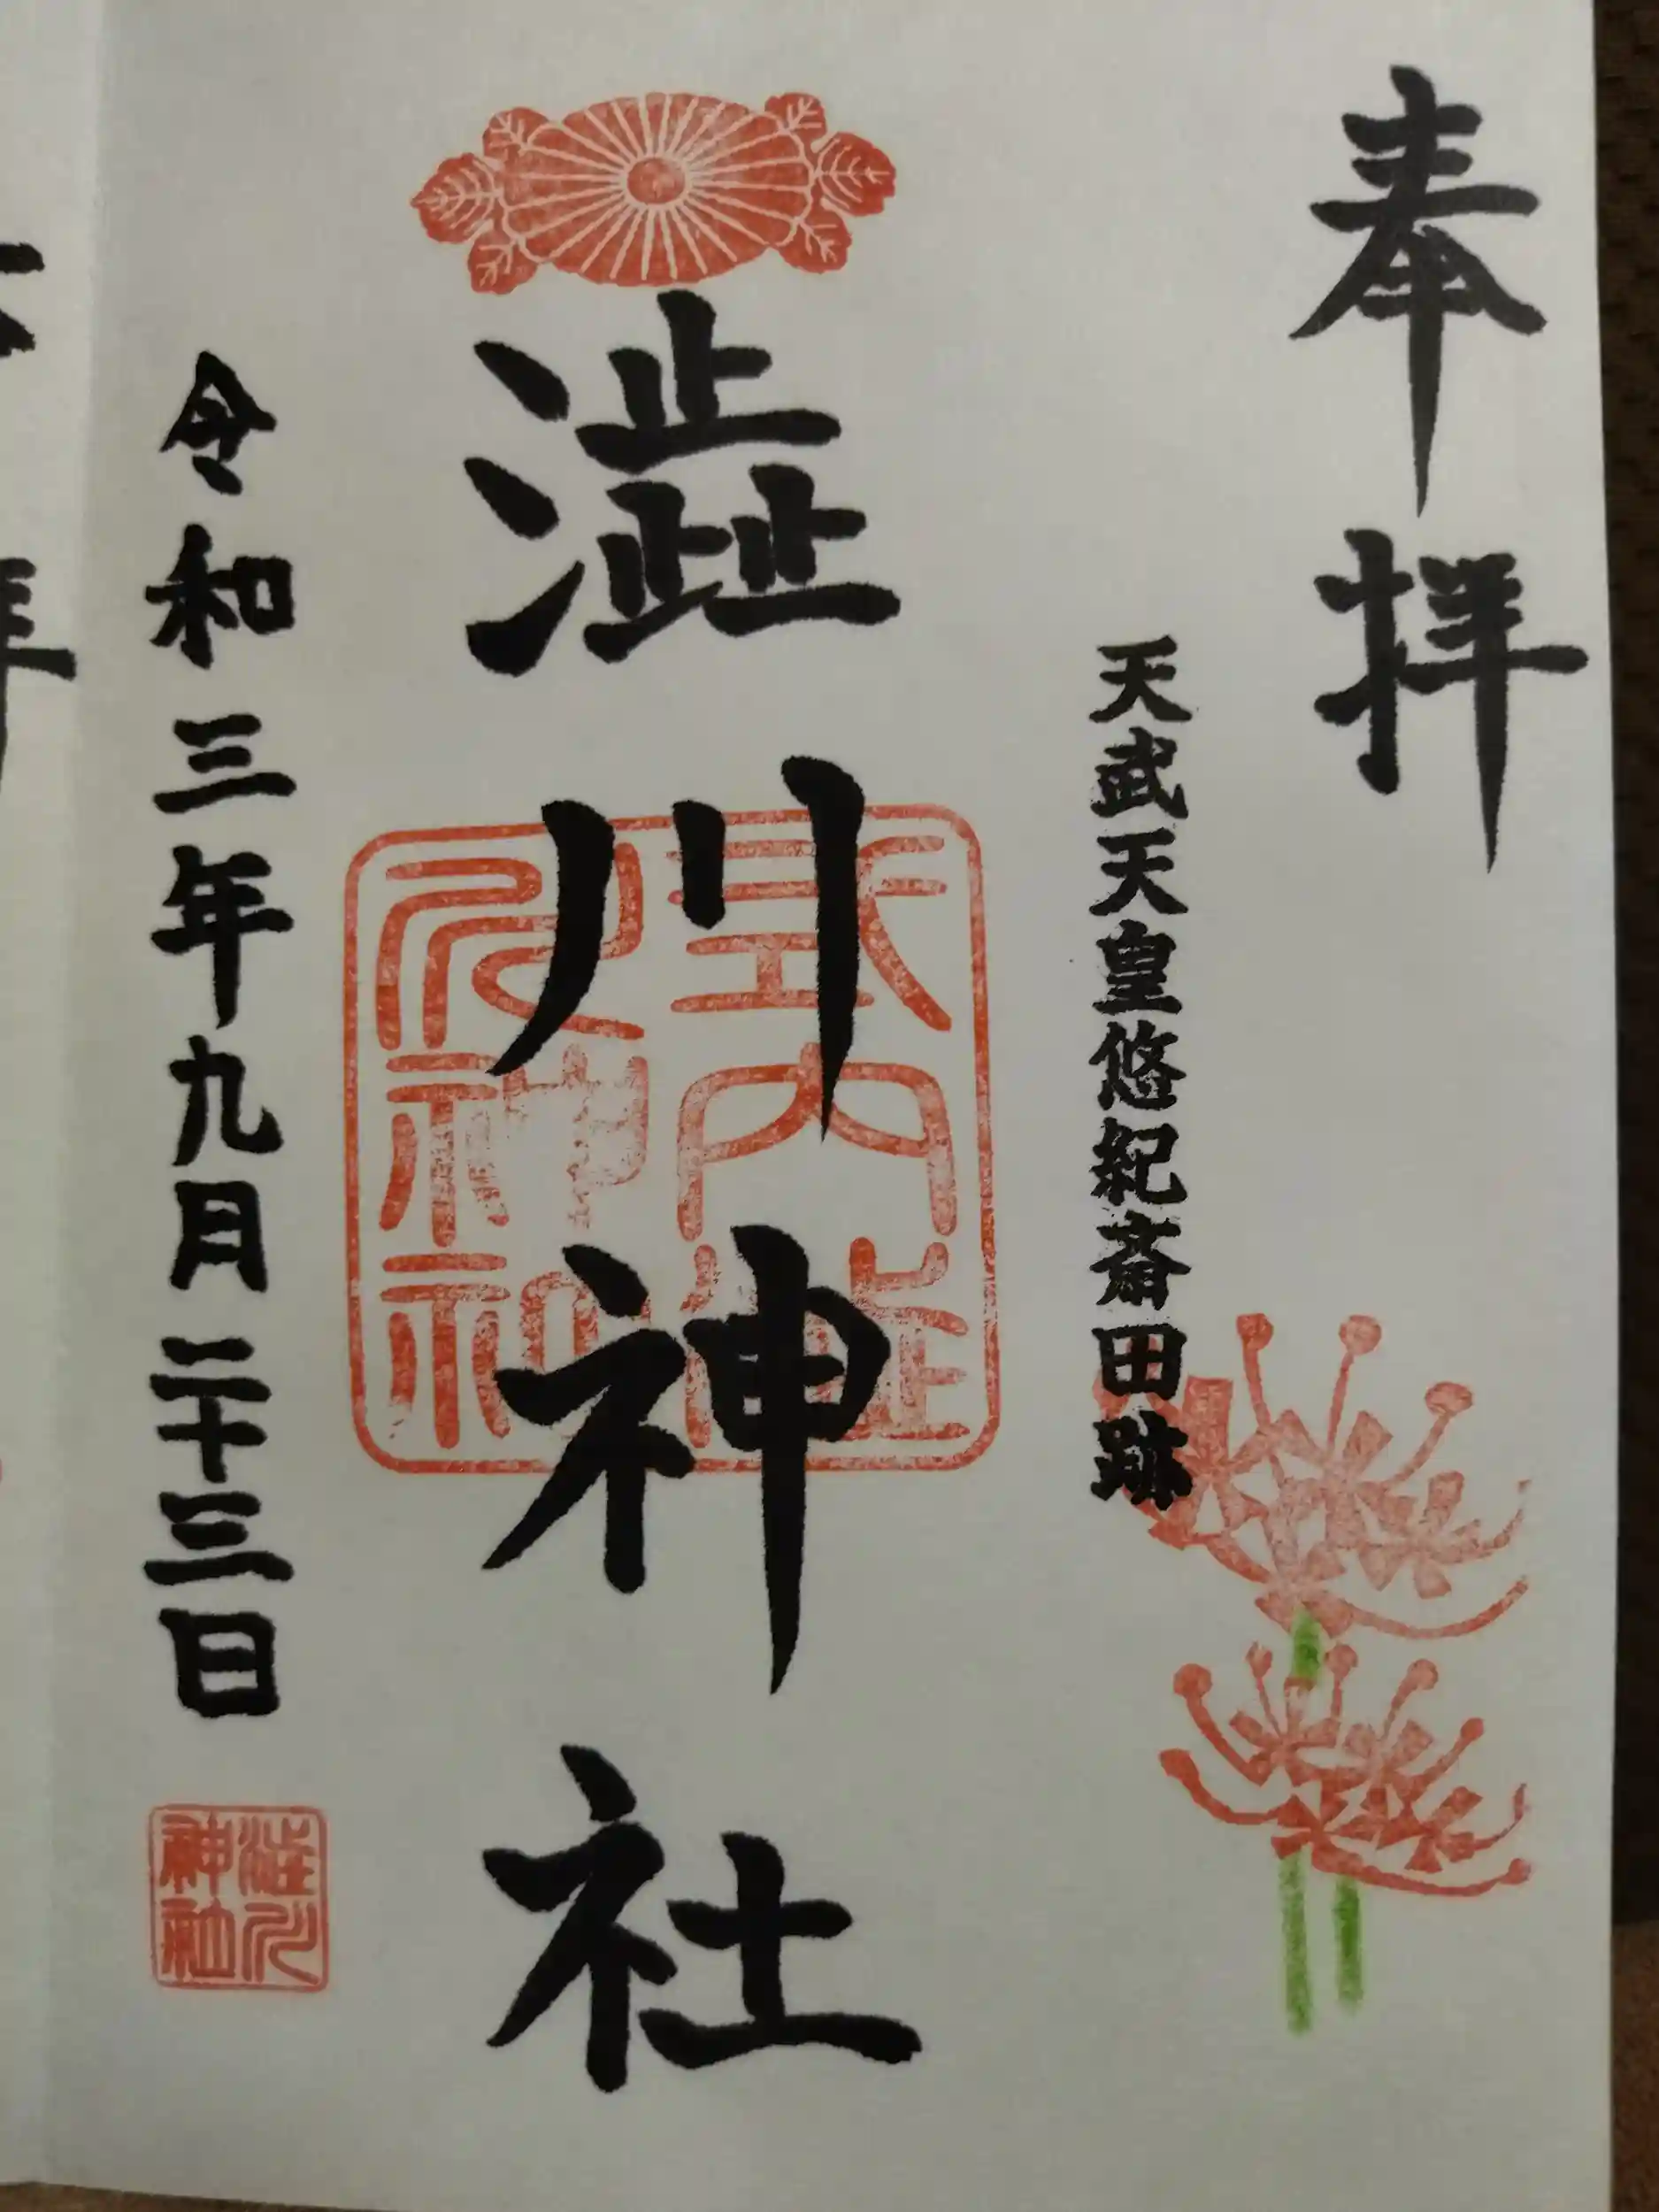 奉拝
天武天皇悠紀斎田跡
澁川神社
令和三年九月二十三日
澁川神社